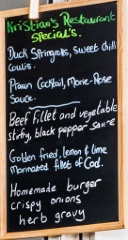 Kristian's Restaurant
Special's.
Duck Stringrolls, Sweet chill
Coulis.
Prawn Cocktail, Marie-Rose
Sauce.
Beef Fillet and vegetable
stirfry, black pepper sauce
Golden fried, lemon & lime
Marinated fillet of Cod.
Homemade burger
crispy onions
herb gravy